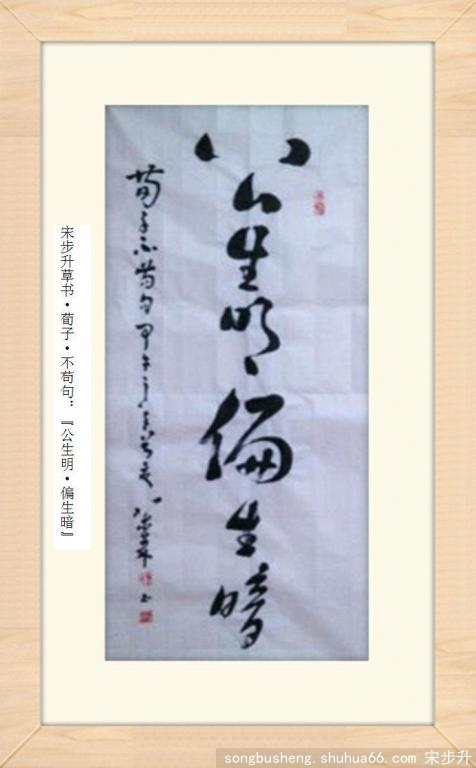 公生明偏生暗
荀子不苟句甲午
宋步升草书•荀子•不苟句：『公生明•偏生暗』
songbusheng.shuhua66.com 宋步升